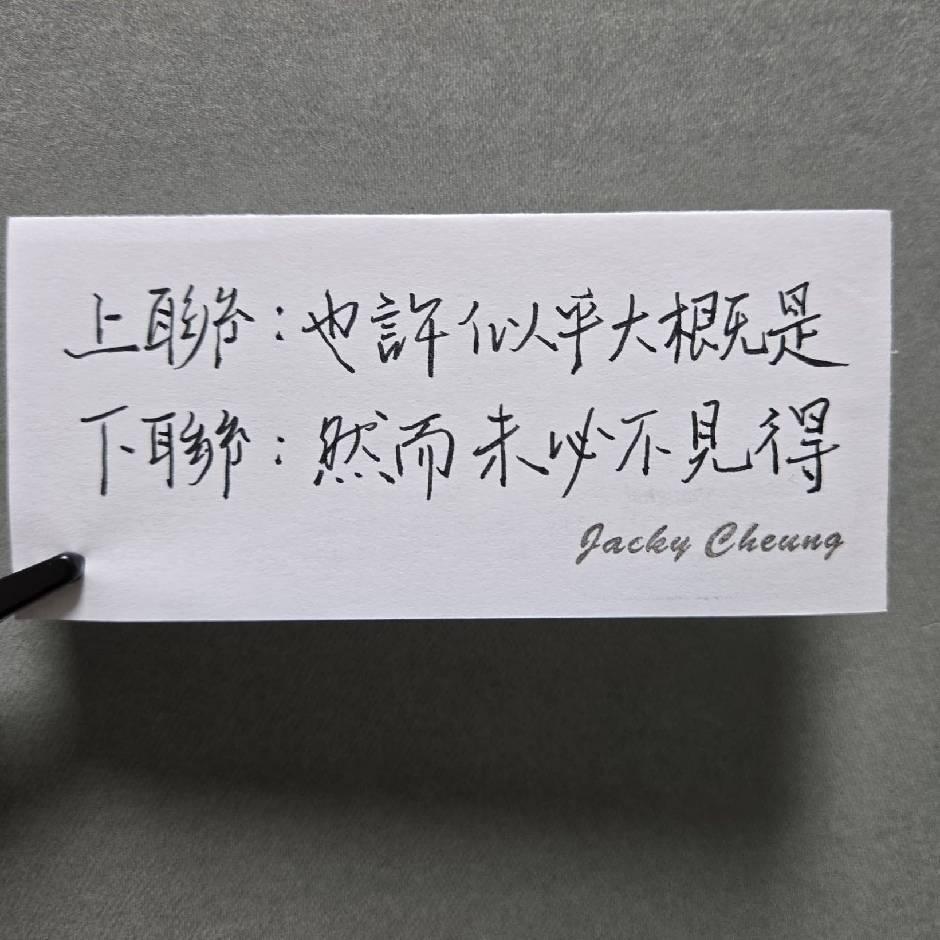 上聯：也許似乎大概是
下聯：然而未必不見得
Jacky Cheung